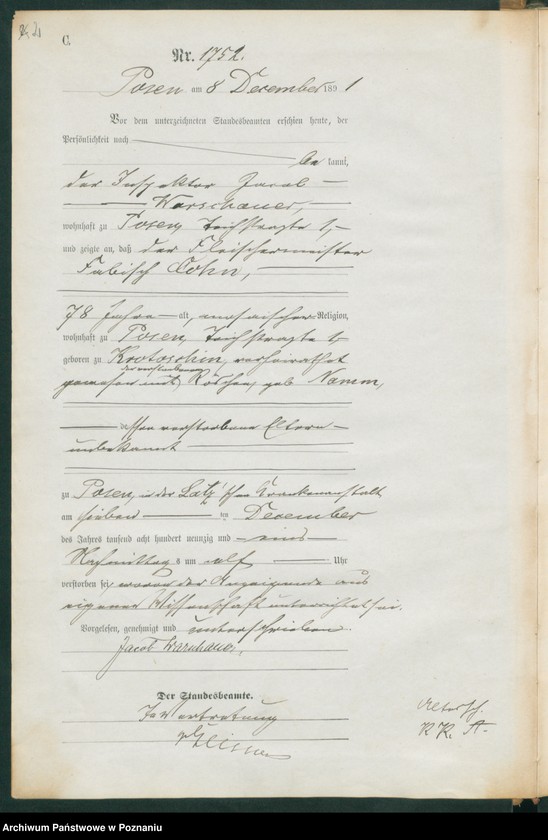 C.
Nr. 1752.
Posen am 8 Dezember 1891
Vor dem unterzeichneten Standesbeamten erschien heute, der
Persönlichkeit nach
be kannt,
der Inspektor Jacob
Warschauer,
wohnhaft zu Posen, Teichstraße 1,
und zeigte an, daß der Fleischermeister
Fabisch Cohn,
78 Jahre alt, mosaischer Religion,
wohnhaft zu Posen, Teichstraße 1,
geboren zu Krotoschin, verheirathet
der verstorbenen
gewesen mit Röschen, geb.
dessen verstorbene Eltern
unbekannt
zu Posen, in der Latz'schen Krankenanstalt
am sieben ten Dezember
des Jahres tausend acht hundert neunzig und eins
Nachmittag s um elf Uhr
verstorben sei, wovon der Anzeigende aus
eigener Wissenschaft unterrichtet sei.
Vorgelesen, genehmigt und unterschrieben.
Jacob Warschauer.
Der Standesbeamte.
In Vertretung
Altersch.
Archiwum Państwowe w Poznaniu